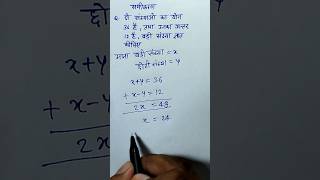 समीकरण
Q. दो संख्याओं का योग
36 है, तथा उनका अन्तर
12 है, बड़ी संख्या ज्ञात
कीजिए
माना बड़ी संख्या = x
छोटी संख्या = y
x+y = 36
+ x-y = 12
2x = 48
x = 24